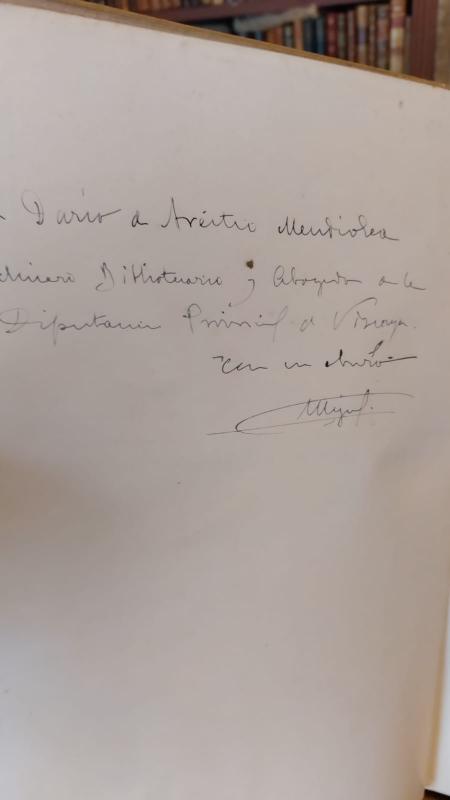 Dario de Areitio Mendiolea
Bibliotecario y Abogado de la
Diputacion Provincial de Vizcaya.
con un abrazo
Miguel.